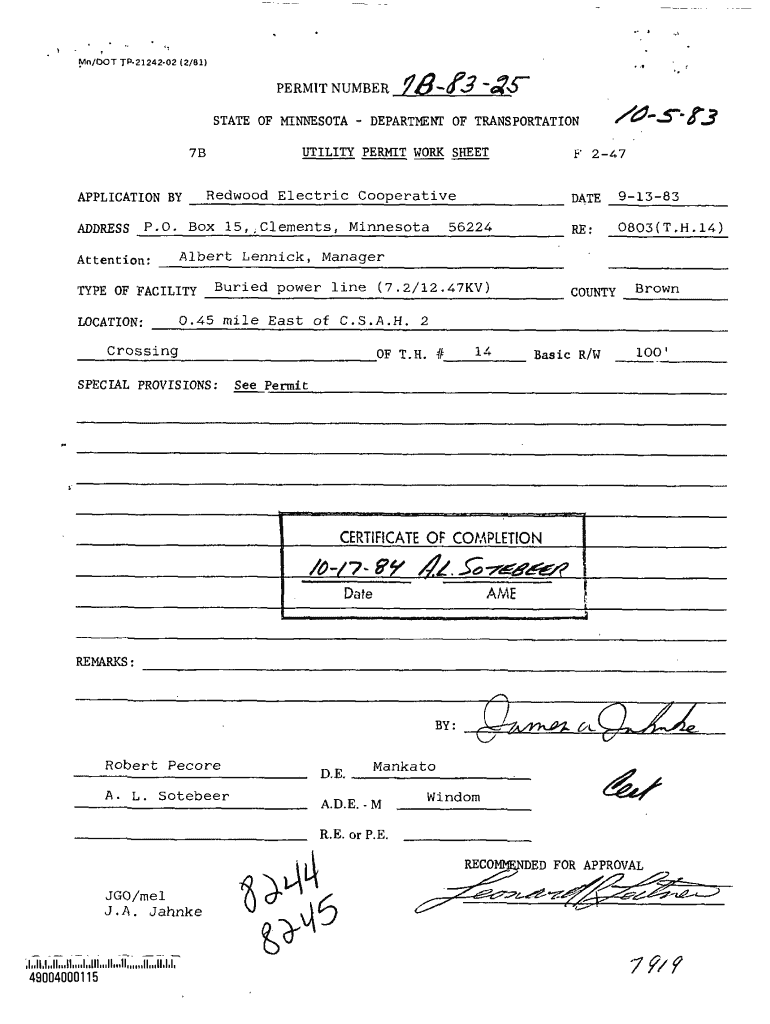 Mn/DOT TP-21242-02 (2/81)
PERMIT NUMBER 7B-83-25
STATE OF MINNESOTA - DEPARTMENT OF TRANSPORTATION 10-5-83
7B UTILITY PERMIT WORK SHEET F 2-47
APPLICATION BY Redwood Electric Cooperative DATE 9-13-83
ADDRESS P.O. Box 15, Clements, Minnesota 56224 RE: 0803(T.H.14)
Attention: Albert Lennick, Manager
TYPE OF FACILITY Buried power line (7.2/12.47KV) COUNTY Brown
LOCATION: 0.45 mile East of C.S.A.H. 2
Crossing OF T.H. # 14 Basic R/W 100'
SPECIAL PROVISIONS: See Permit
CERTIFICATE OF COMPLETION
10-17-84 A.L. SOTEBEER
Date AME
REMARKS:
BY: James A Jahnke
Robert Pecore D.E. Mankato
A. L. Sotebeer A.D.E. - M Windom
Cert
R.E. or P.E.
RECOMMENDED FOR APPROVAL
8244
JGO/mel
J.A. Jahnke
8245
7919
49004000115